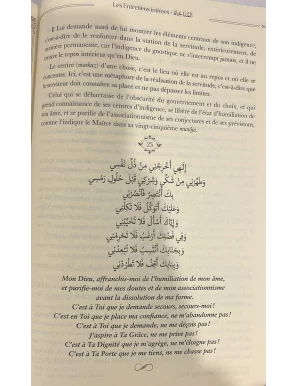 Les Entretiens intimes -
Il Lui demande aussi de lui montrer les éléments centraux de son indigence,
c'est-à-dire de le renforcer dans la station de la servitude, extérieurement, de
manière permanente, car l'indigence du gnostique ne s'interrompt jamais, et il ne
trouve le repos intérieur qu'en Dieu.
Le centre (markaz) d'une chose, c'est le lieu où elle est au repos et où elle se
concentre. Ici, c'est une métaphore de la réalisation de la servitude, c'est-à-dire que le
serviteur doit connaître sa place et ne pas dépasser les limites.
Celui qui se débarrasse de l'obscurité du gouvernement et du choix, et qui
prend connaissance de ses centres d'indigence, se libère de l'état d'humiliation de
son âme, et se purifie de l'associationnisme de ses conjectures et de ses prévisions,
comme l'indique le Maître dans sa vingt-cinquième
25
إِلَهِي أَخْرِجْنِي مِنْ ذُلِّ نَفْسِي
وَطَهِّرْنِي مِنْ شَكِّي وَشِرْكِي قَبْلَ حُلُولِ رَمْسِي
بِكَ أَنْتَصِرُ فَانْصُرْنِي
وَعَلَيْكَ أَتَوَكَّلُ فَلَا تَكِلْنِي
وَإِيَّاكَ أَسْأَلُ فَلَا تُخَيِّبْنِي
وَفِي فَضْلِكَ أَرْغَبُ فَلَا تَحْرِمْنِي
وَبِجَنَابِكَ أَنْتَسِبُ فَلَا تُبْعِدْنِي
وَبِبَابِكَ أَقِفُ فَلَا تَطْرُدْنِي
Mon Dieu, affranchis-moi de l'humiliation de mon âme,
et purifie-moi de mes doutes et de mon associationnisme
avant la dissolution de ma forme.
C'est à Toi que je demande secours, secours-moi !
C'est en Toi que je place ma confiance, ne m'abandonne pas !
C'est à Toi que je demande, ne me déçois pas !
J'aspire à Ta Grâce, ne me prive pas !
C'est à Ta Dignité que je m'agrège, ne m'éloigne pas !
C'est à Ta Porte que je me tiens, ne me chasse pas !